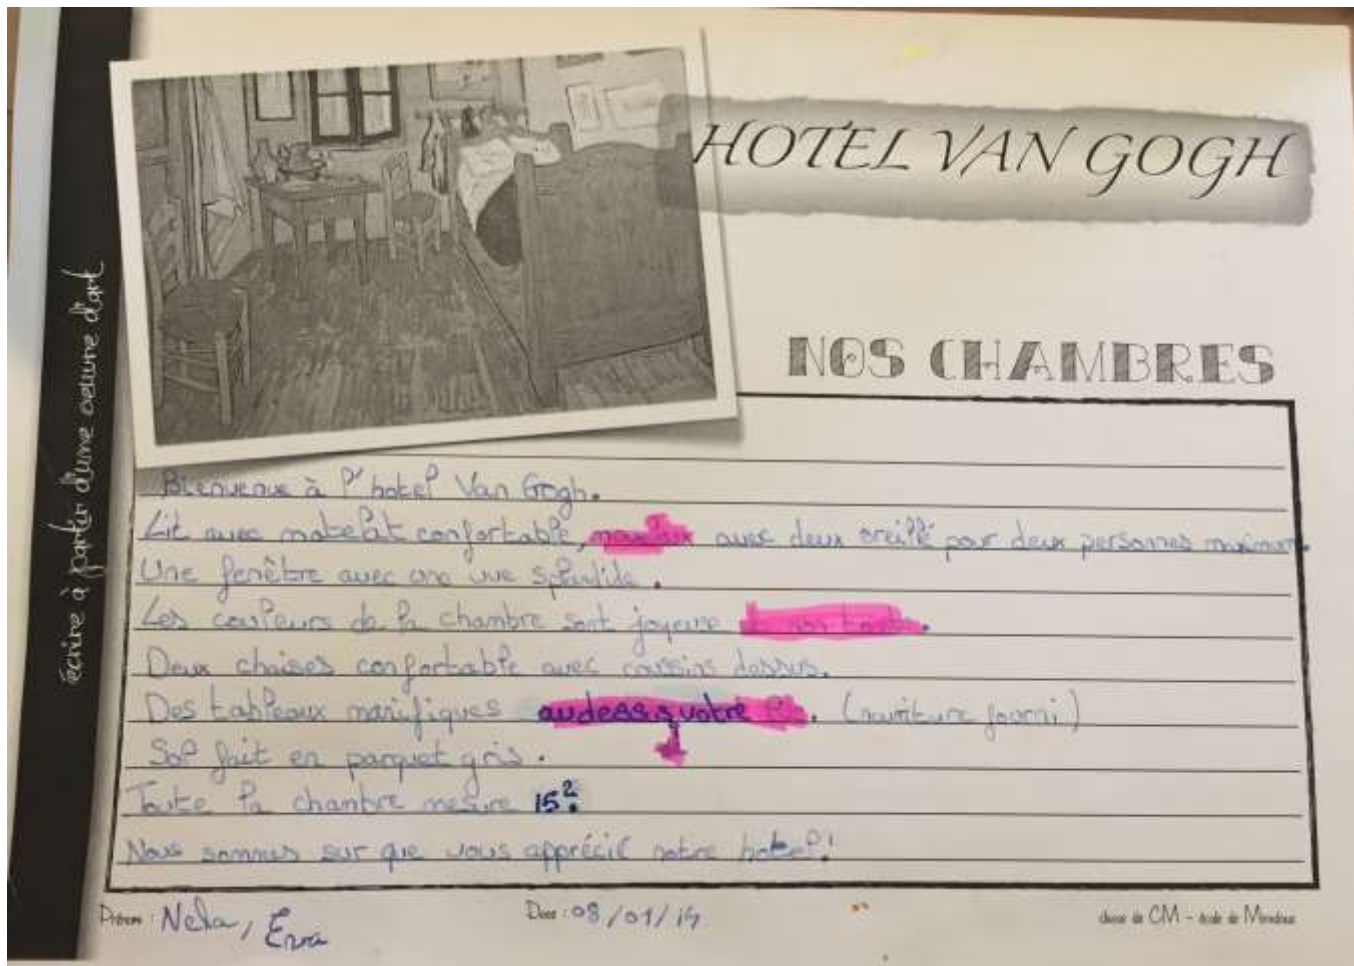 HOTEL VAN GOGH
NOS CHAMBRES
écrire à partir d'une oeuvre d'art
Bienvenue à l'hotel Van Gogh.
Lit avec matelat confortable, avec deux oreillé pour deux personnes maximum.
Une fenêtre avec une vue splendide.
Les couleurs de la chambre sont joyeuse
Deux chaises confortable avec coussins dessus.
Des tableaux manifiques audessus votre (nouriture fourni)
Sol fait en parquet gris.
Toute la chambre mesure 15².
Nous sommes sur que vous apprécié notre hotel!
Prénom : Nela, Erva Date : 08/01/19 classe de CM - école de Miradoux